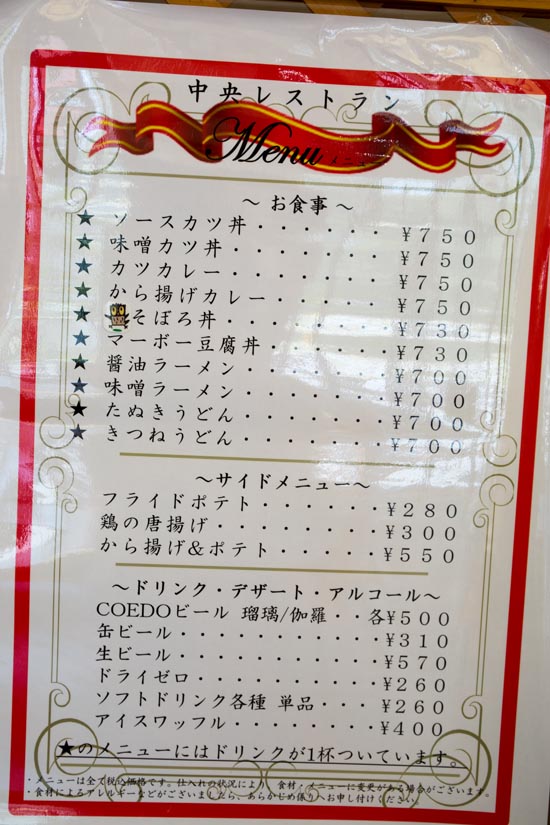 中央レストラン
Menu
～ お食事 ～
★ ソースカツ丼・・・・・・￥７５０
★ 味噌カツ丼・・・・・・・￥７５０
★ カツカレー・・・・・・・￥７５０
★ から揚げカレー・・・・・￥７５０
★ そぼろ丼・・・・・・・・￥７３０
★ マーボー豆腐丼・・・・・￥７３０
★ 醤油ラーメン・・・・・・￥７００
★ 味噌ラーメン・・・・・・￥７００
★ たぬきうどん・・・・・・￥７００
★ きつねうどん・・・・・・￥７００
～サイドメニュー～
フライドポテト・・・・・・￥２８０
鶏の唐揚げ・・・・・・・・￥３００
から揚げ＆ポテト・・・・・￥５５０
～ドリンク・デザート・アルコール～
COEDOビール 瑠璃/伽羅・・各￥５００
缶ビール・・・・・・・・・・￥３１０
生ビール・・・・・・・・・・￥５７０
ドライゼロ・・・・・・・・・￥２６０
ソフトドリンク各種 単品・・・￥２６０
アイスワッフル・・・・・・・￥４００
★のメニューにはドリンクが1杯ついています。
・メニューは全て税込価格です。仕入れの状況により、食材・メニューに変更がある場合がございます。
・食材によるアレルギーなどがございましたら、あらかじめ係りへお申し付けください。